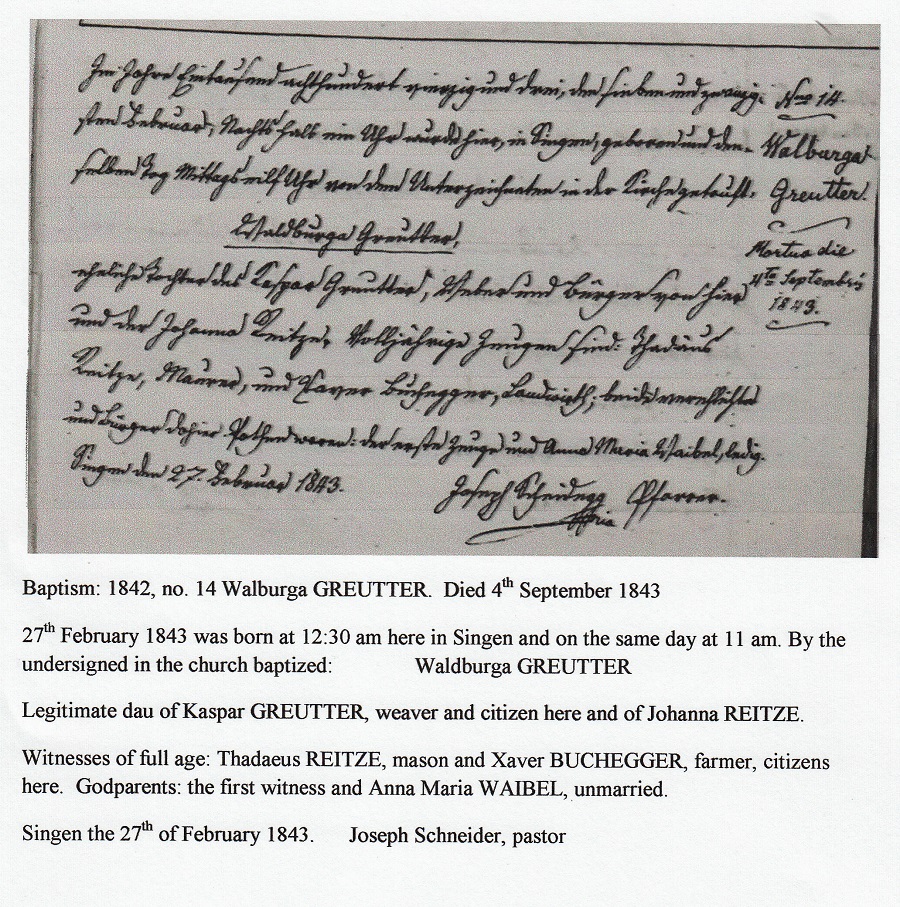 Im Jahre Eintausend achthundert vierzig und drei, den sieben und zwanzig-
sten Februar, Nachts halb ein Uhr wurde hier, in Singen, geboren und den-
selben Tag Mittags eilf Uhr von dem Unterzeichneten in der Kirche getauft:
Waldburga Greutter,
eheliche Tochter des Kaspar Greutter, Weber und Bürger von hier
und der Johanna Reitze. Volljährige Zeugen sind: Thadäus
Reitze, Maurer, und Xaver Buchegger, Landwirth; beide verehlichte
und Bürger dahier Pathen waren: der erste Zeuge und Anna Maria Waibel, ledig.
Singen den 27. Februar 1843.
Joseph Pfarrer.
Nro 14.
Walburga
Greutter.
Mortua die
4ta Septembris
1843.
Baptism: 1842, no. 14 Walburga GREUTTER. Died 4th September 1843
27th February 1843 was born at 12:30 am here in Singen and on the same day at 11 am. By the
undersigned in the church baptized: Waldburga GREUTTER
Legitimate dau of Kaspar GREUTTER, weaver and citizen here and of Johanna REITZE.
Witnesses of full age: Thadaeus REITZE, mason and Xaver BUCHEGGER, farmer, citizens
here. Godparents: the first witness and Anna Maria WAIBEL, unmarried.
Singen the 27th of February 1843. Joseph Schneider, pastor